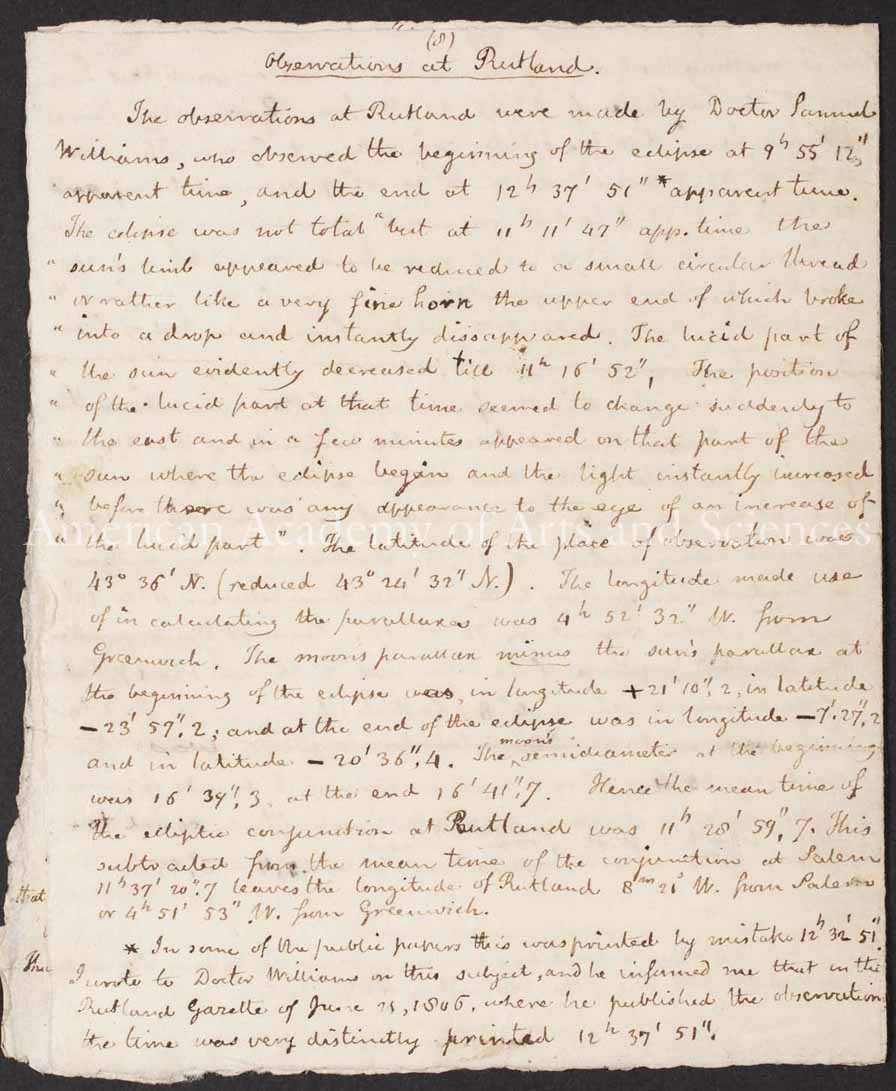 (8)
Observations at Rutland.
The observations at Rutland were made by Doctor Samuel
Williams, who observed the beginning of the eclipse at 9h 55' 12",
apparent time, and the end at 12h 37' 51" * apparent time.
The eclipse was not total "but at 11h 11' 47" app. time the
" sun's limb appeared to be reduced to a small circular thread
" or rather like a very fine horn the upper end of which broke
" into a drop and instantly dissappeared. The lucid part of
" the sun evidently decreased till 11h 16' 52", The position
" of the lucid part at that time seemed to change suddenly to
" the east and in a few minutes appeared on that part of the
" sun where the eclipse began and the light instantly increased
" before there was any appearance to the eye of an increase of
" the lucid part". The latitude of the place of observation was
American Academy of Arts and Sciences
43° 36' N. (reduced 43° 24' 32" N.). The longitude made use
of in calculating the parallaxes was 4h 52' 32" W. from
Greenwich. The moons parallax minus the sun's parallax at
the beginning of the eclipse was, in longitude +21' 10",2, in latitude
-23' 57",2; and at the end of the eclipse was in longitude -7' 27",2
and in latitude -20' 36",4. The moon's semidiameter at the beginning
was 16' 39",3 at the end 16' 41",7. Hence the mean time of
the ecliptic conjunction at Rutland was 11h 28' 59",7. This
subtracted from the mean time of the conjunction at Salem
11h 37' 20",7 leaves the longitude of Rutland 8m 21s W. from Salem
or 4h 51' 53" W. from Greenwich.
* In some of the public papers this was printed by mistake 12h 32' 51"
I wrote to Doctor Williams on this subject, and he informed me that in the
Rutland Gazette of June 21, 1806, where he published the observations
the time was very distinctly printed 12h 37' 51".
that